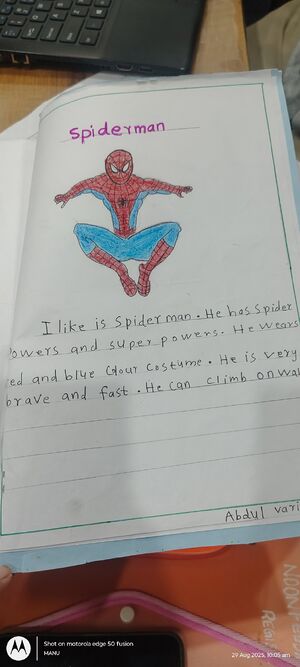 Spiderman
I like is Spiderman. He has Spider
Powers and super powers. He wears
red and blue Colour Costume. He is very
brave and fast. He can climb on wal
Abdul vari
Shot on motorola edge 50 fusion
MANU
29 Aug 2025, 10:05 am